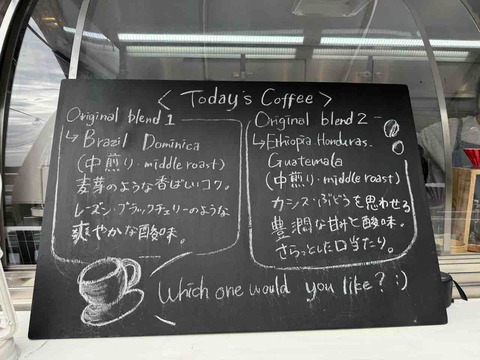 < Today's Coffee >
Original blend 1
↳ Brazil Dominica
(中煎り・middle roast)
麦芽のような香ばしいコク。
レーズン・ブラックチェリーのような
爽やかな酸味。
Original blend 2
↳ Ethiopia Honduras.
Guatemala
(中煎り・middle roast)
カシス・ぶどうを思わせる
豊潤な甘みと酸味。
さらっとした口当たり。
Which one would you like? :)